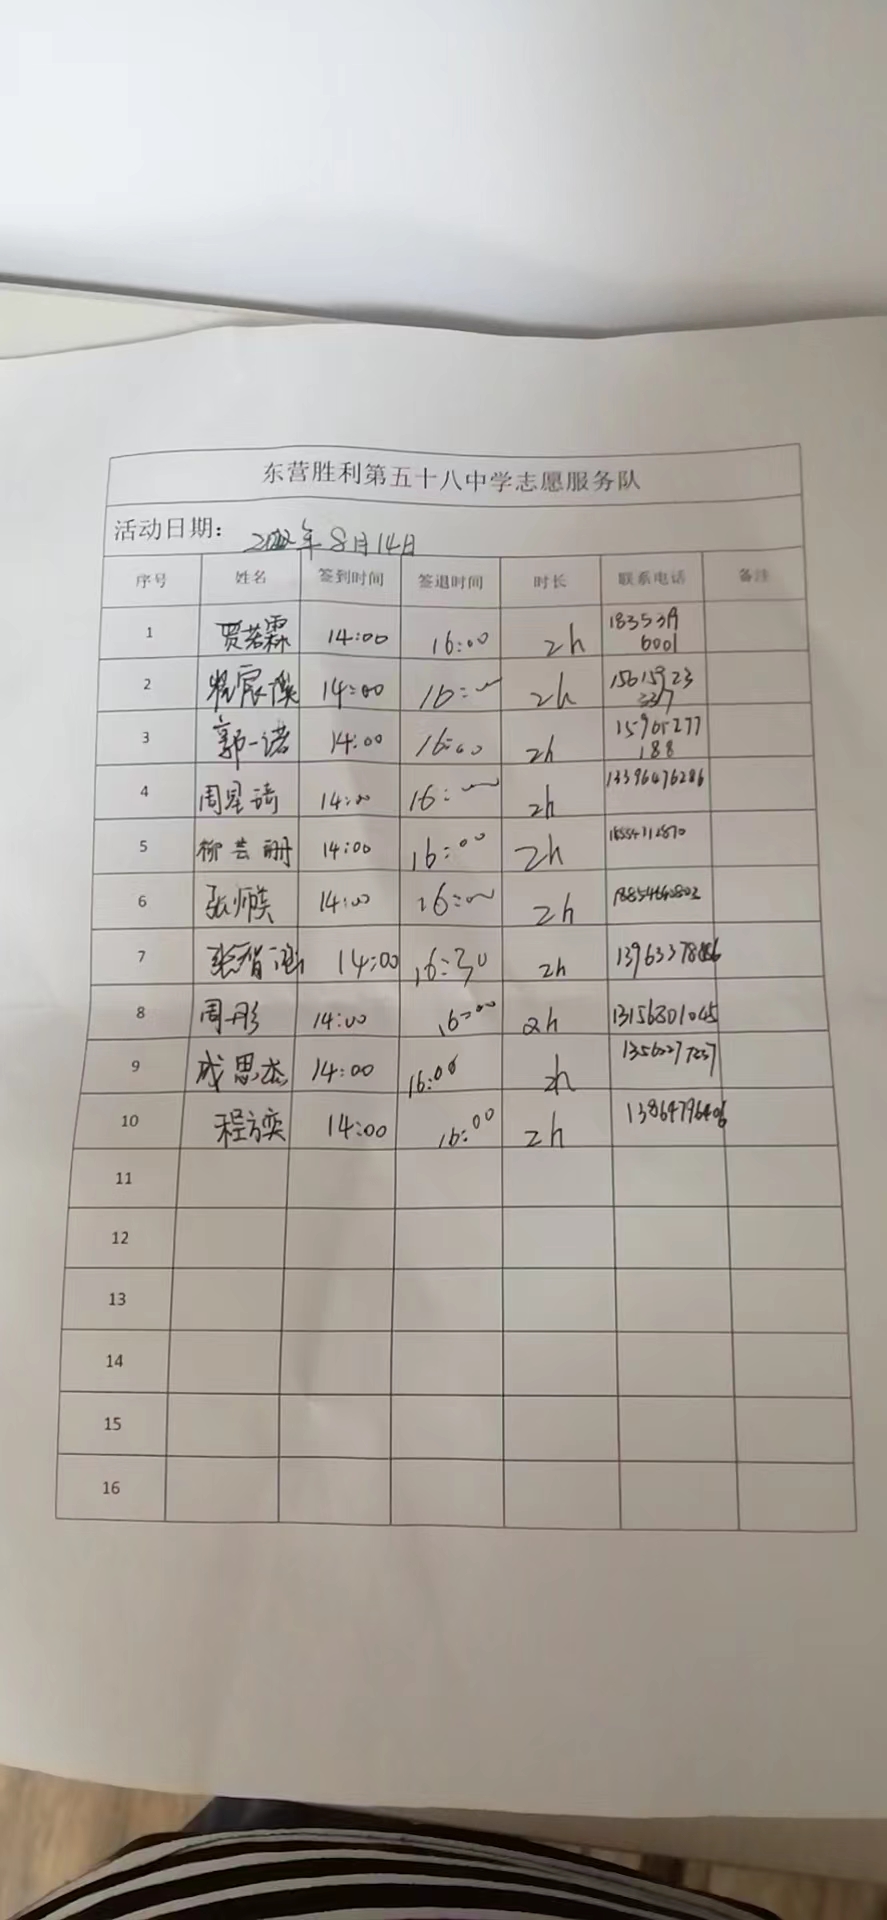 东营胜利第五十八中学志愿服务队
活动日期： 2022年8月14日
序号 姓名 签到时间 签退时间 时长 联系电话 备注
1 贾若霖 14:00 16:00 2h 1835319
6001
2 14:00 16:00 2h 15615923
337
3 郭一诺 14:00 16:00 2h 15905277
188
4 周星琦 14:00 16:00 2h 13396476286
5 柳芸珊 14:00 16:00 2h
6 张师瑛 14:00 16:00 2h
7 张智涵 14:00 16:30 2h
8 周彤 14:00 16:00 2h 13156801045
9 成思杰 14:00 16:00 2h
10 程方奕 14:00 16:00 2h 13864796406
11
12
13
14
15
16